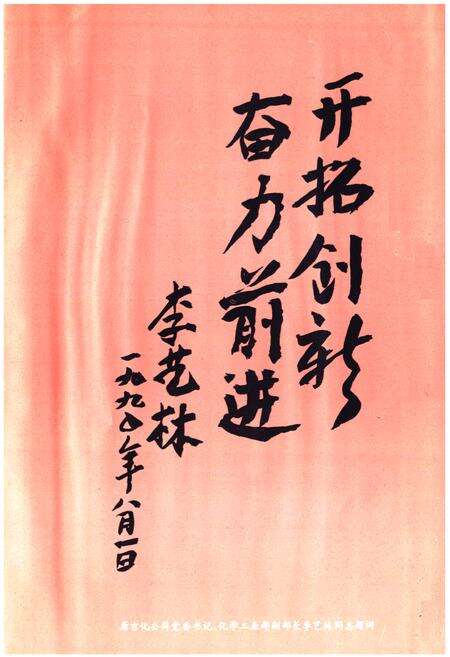 开拓创新
奋力前进
李艺林
一九九〇年八月一日
原吉化公司党委书记、化学工业部副部长李艺林同志题词